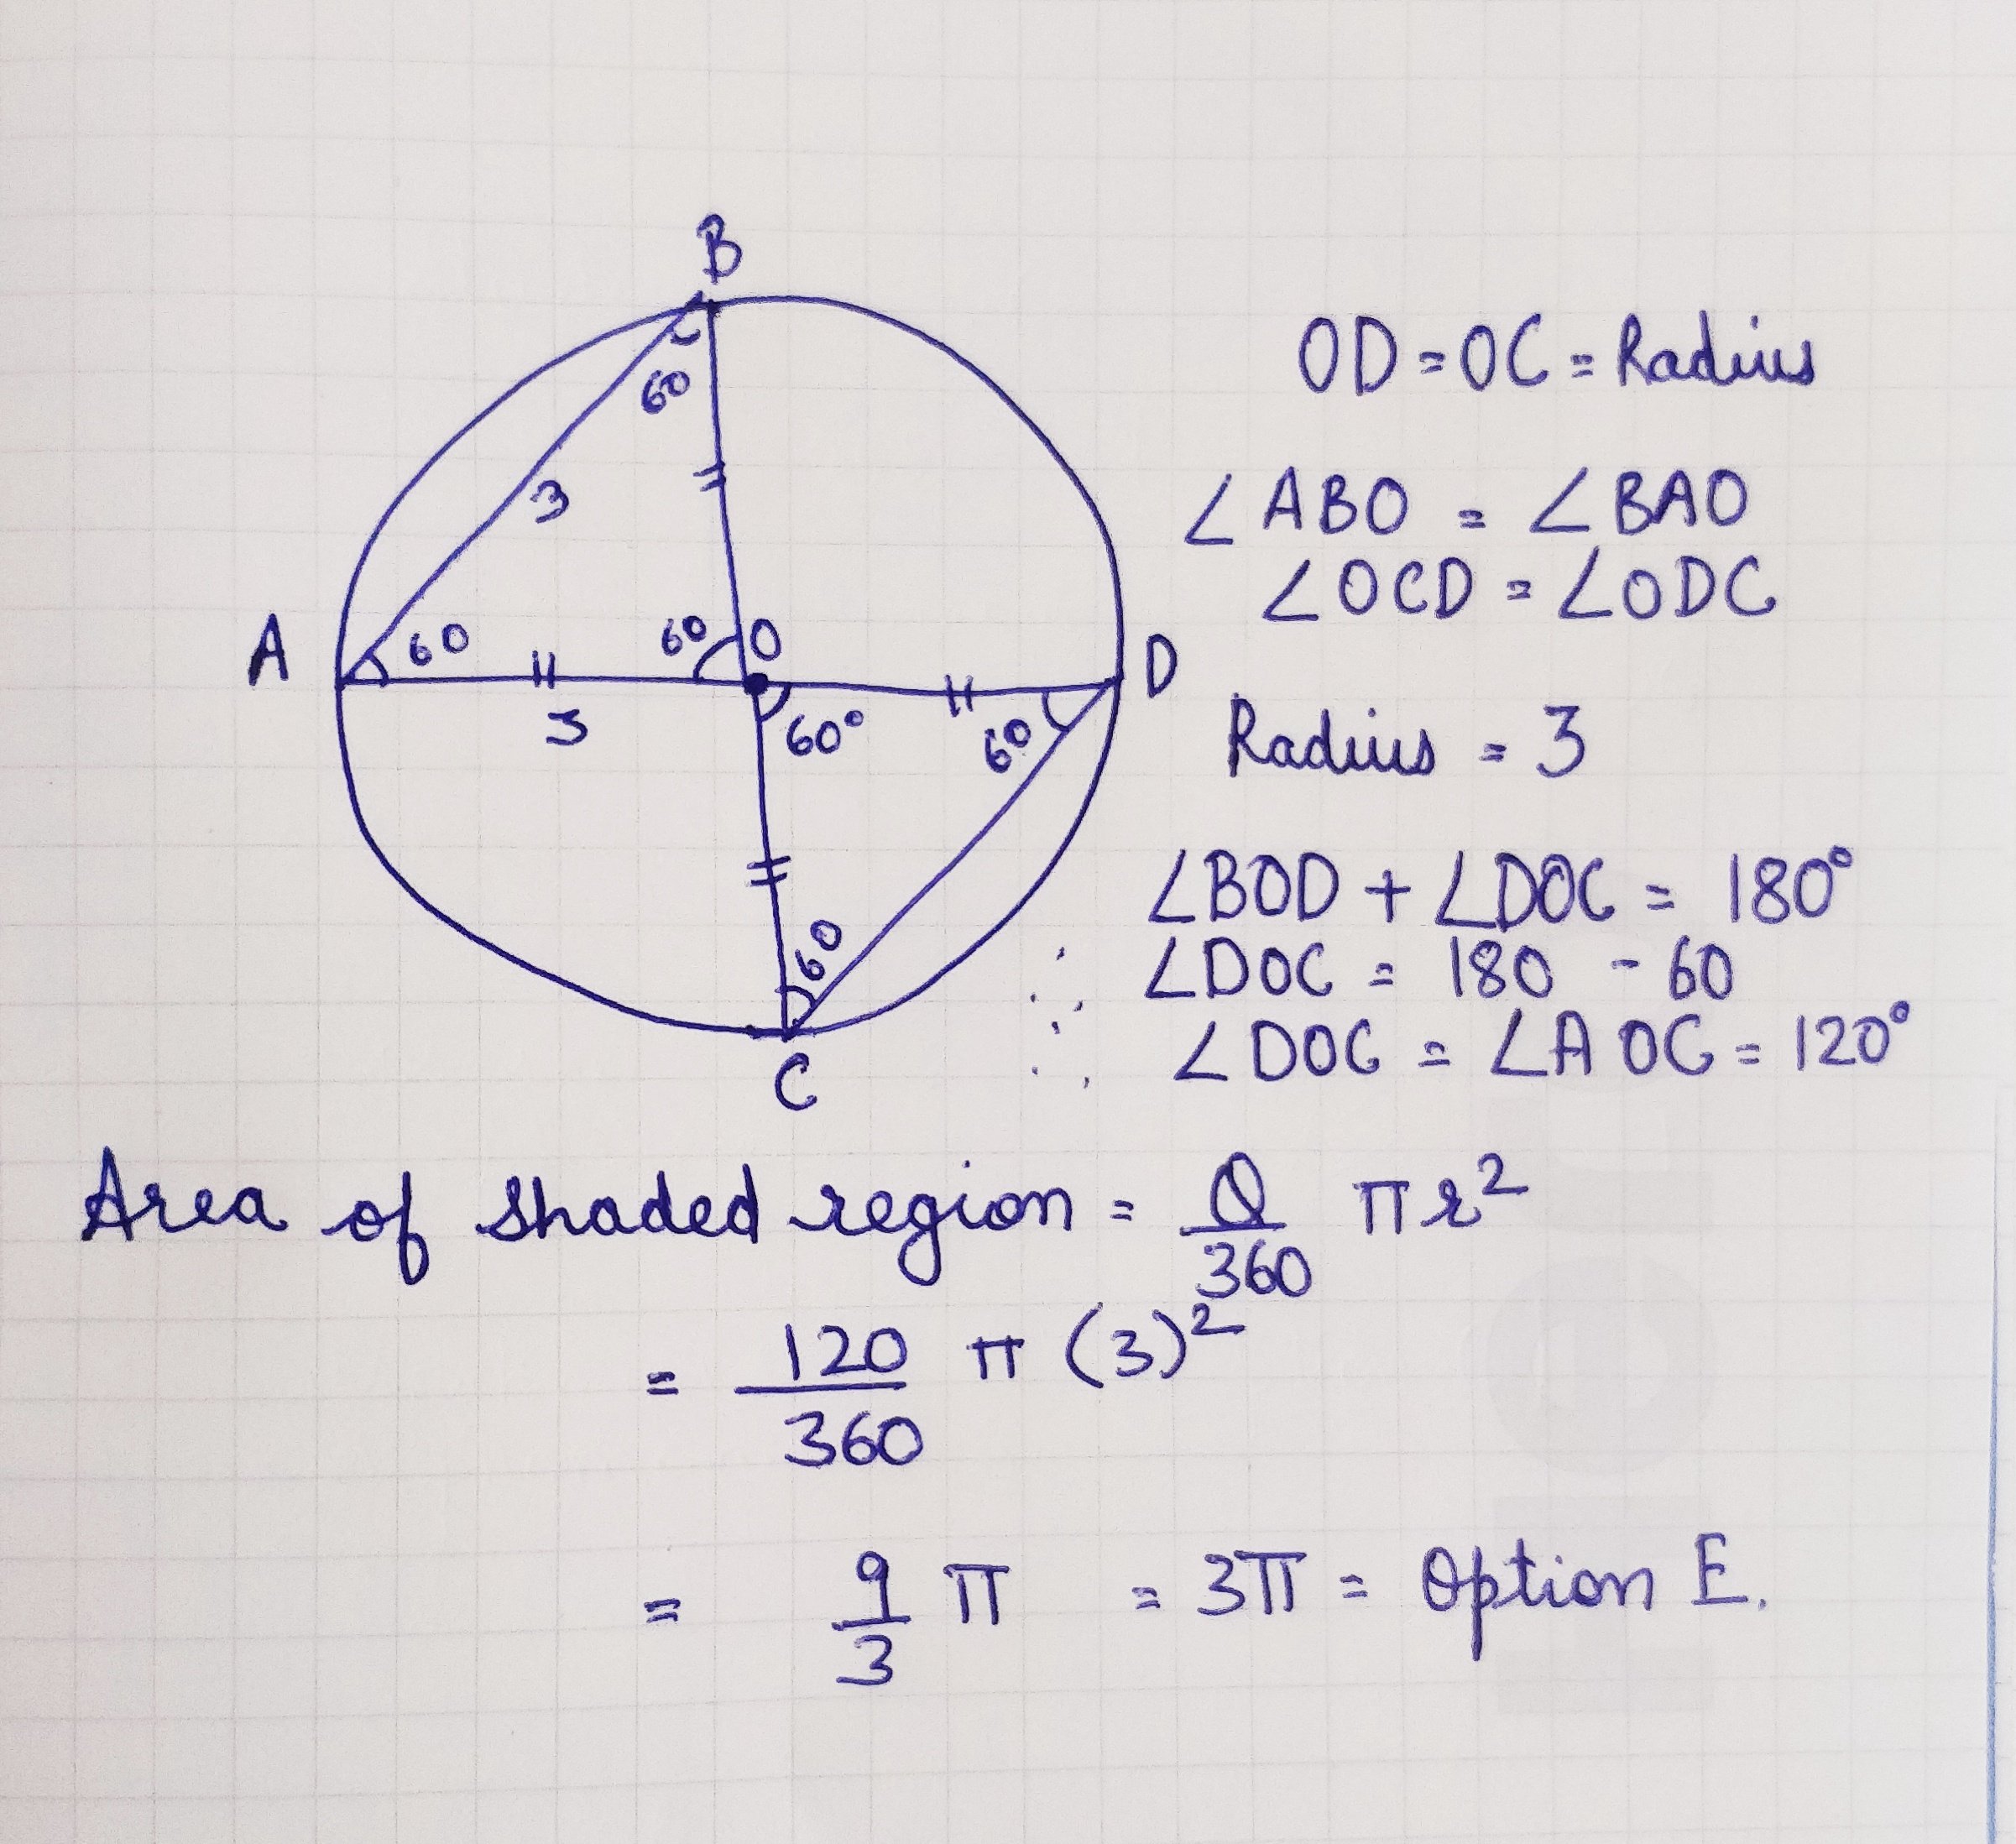 B
60
3
A 60 60 O D
3 60° 60
60
C
OD = OC = Radius
∠ABO = ∠BAO
∠OCD = ∠ODC
Radius = 3
∠BOD + ∠DOC = 180°
∴ ∠DOC = 180 - 60
∴ ∠DOC = ∠AOC = 120°
Area of shaded region = θ/360 πr²
= 120/360 π (3)²
= 9/3 π = 3π = Option E.